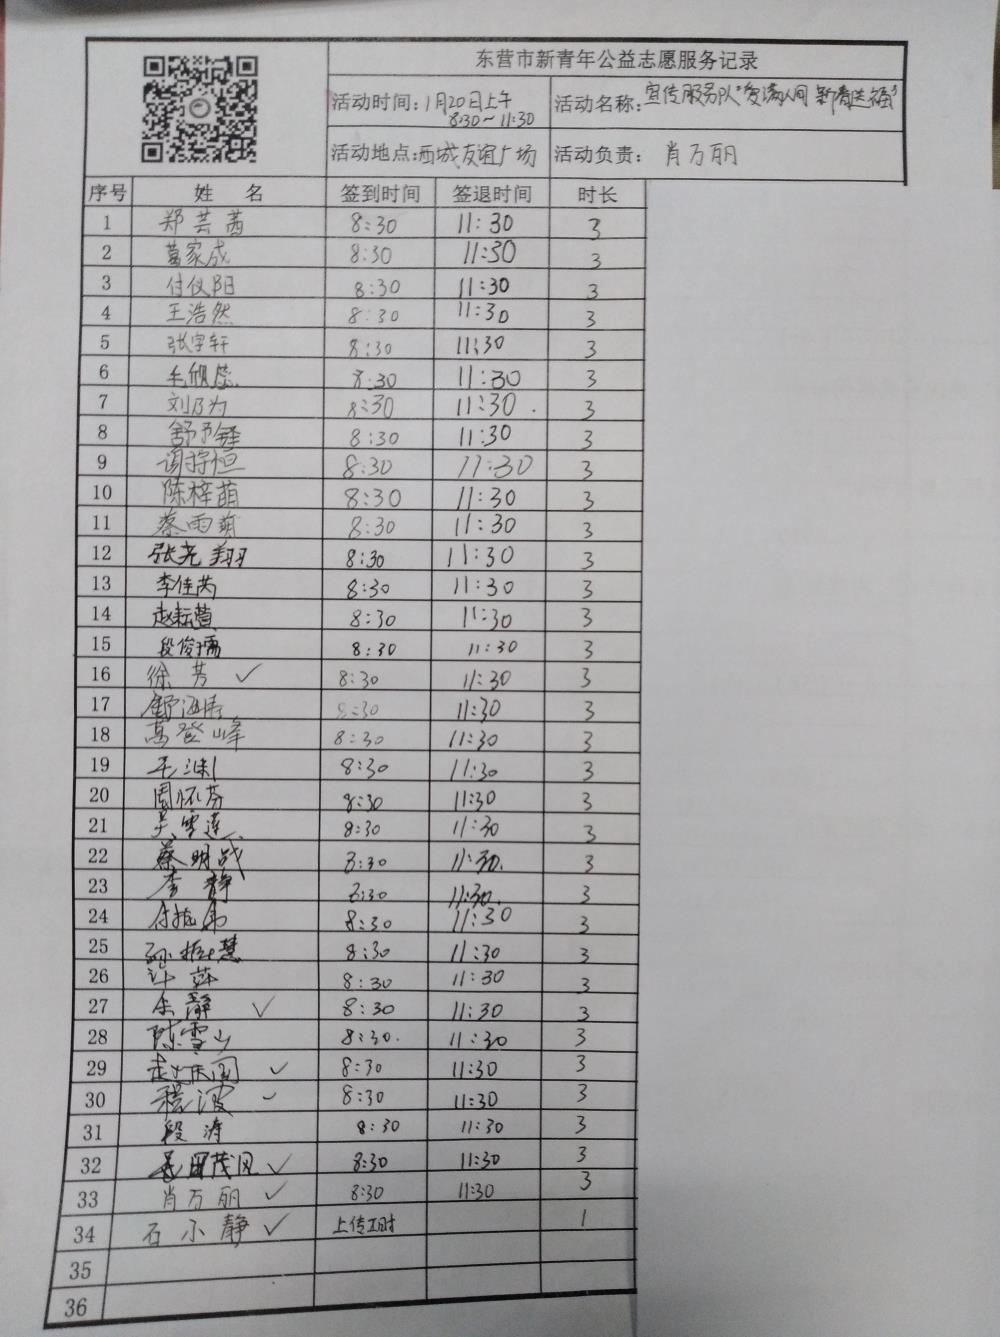 东营市新青年公益志愿服务记录
活动时间:1月20日上午 8:30~11:30 活动名称:宣传服务队"爱满人间 新春送福"
活动地点:西城友谊广场 活动负责: 肖万丽
序号 姓 名 签到时间 签退时间 时长
1 郑芸茜 8:30 11:30 3
2 葛家成 8:30 11:30 3
3 付仪阳 8:30 11:30 3
4 王浩然 8:30 11:30 3
5 张宇轩 8:30 11:30 3
6 毛欣蕊 8:30 11:30 3
7 刘乃为 8:30 11:30. 3
8 舒予铎 8:30 11:30 3
9 8:30 11:30 3
10 陈梓萌 8:30 11:30 3
11 蔡雨菊 8:30 11:30 3
12 张尧翔 8:30 11:30 3
13 李佳芮 8:30 11:30 3
14 赵耘萱 8:30 11:30 3
15 段俊孺 8:30 11:30 3
16 徐芳 ✓ 8:30 11:30 3
17 舒海涛 8:30 11:30 3
18 葛登峰 8:30 11:30 3
19 8:30 11:30 3
20 周怀芬 8:30 11:30 3
21 吴雪莲 8:30 11:30 3
22 蔡明战 8:30 11:30. 3
23 李静 8:30 11:30. 3
24 8:30 11:30 3
25 8:30 11:30 3
26 许萍 8:30 11:30 3
27 静 ✓ 8:30 11:30 3
28 陈雪山 8:30. 11:30 3
29 ✓ 8:30 11:30 3
30 程波 8:30 11:30 3
31 段涛 8:30 11:30 3
32 周茂凤 ✓ 8:30 11:30 3
33 肖万丽 ✓ 8:30 11:30 3
34 石小静 ✓ 上传工时 1
35
36